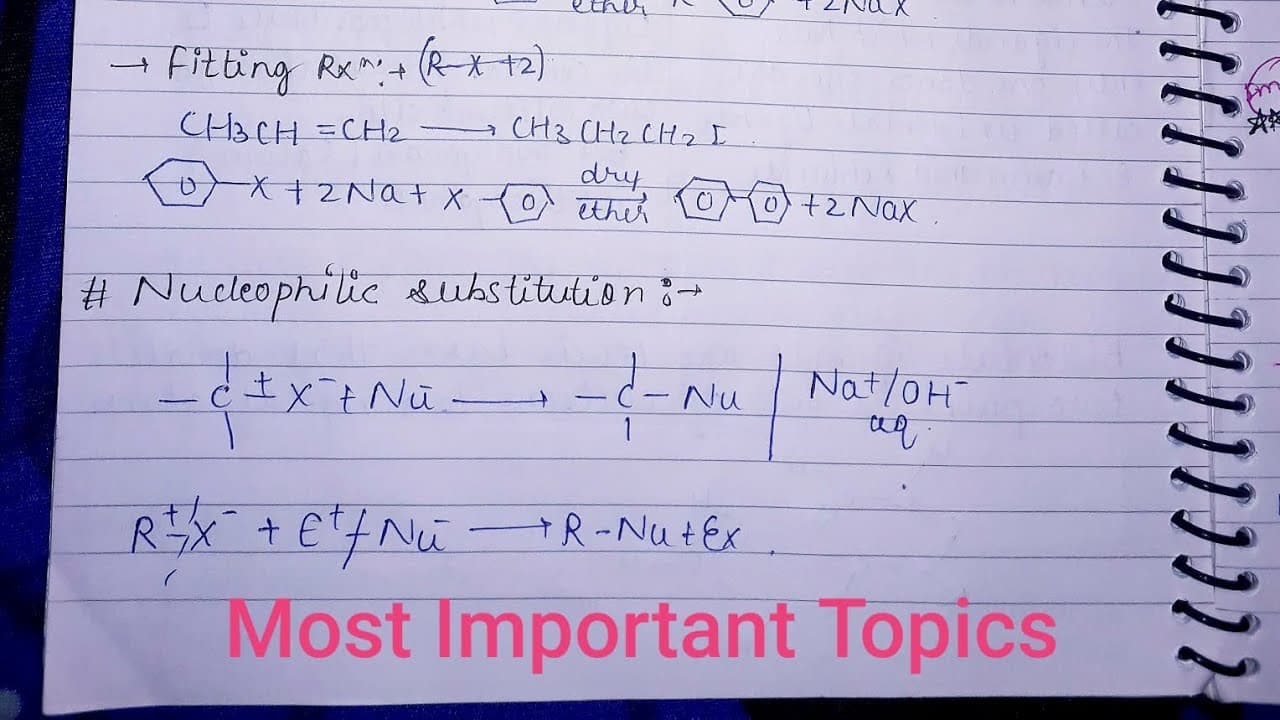 ether + 2Nax
→ Fitting Rxⁿ :→ (R-X+2)
CH3CH=CH2 ⟶ CH3CH2CH2I
X + 2Na + X dry ether + 2Nax.
# Nucleophilic substitution :→
-C ± X⁻ + Nū ⟶ -C- Nu | Na+/OH⁻
aq.
R+/X⁻ + E+/Nū ⟶ R-Nu+Ex.
Most Important Topics